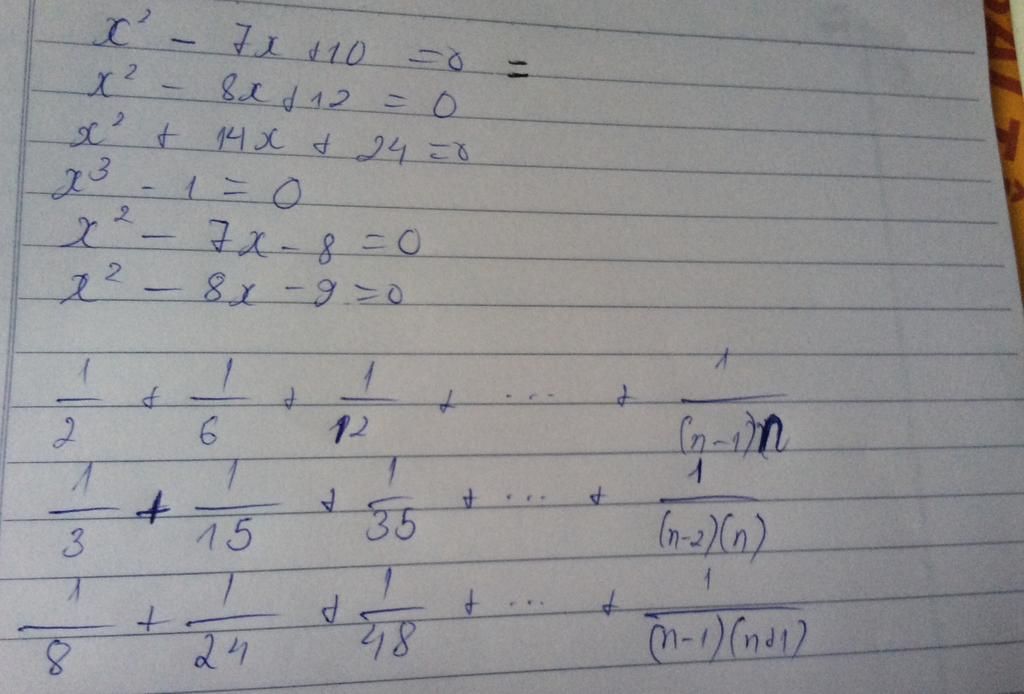 x² - 7x + 10 = 0 =
x² - 8x + 12 = 0
x² + 14x + 24 = 0
x³ - 1 = 0
x² - 7x - 8 = 0
x² - 8x - 9 = 0
1/2 + 1/6 + 1/12 + ... + 1/((n-1)n)
1/3 + 1/15 + 1/35 + ... + 1/((n-2)(n))
1/8 + 1/24 + 1/48 + ... + 1/((n-1)(n+1))